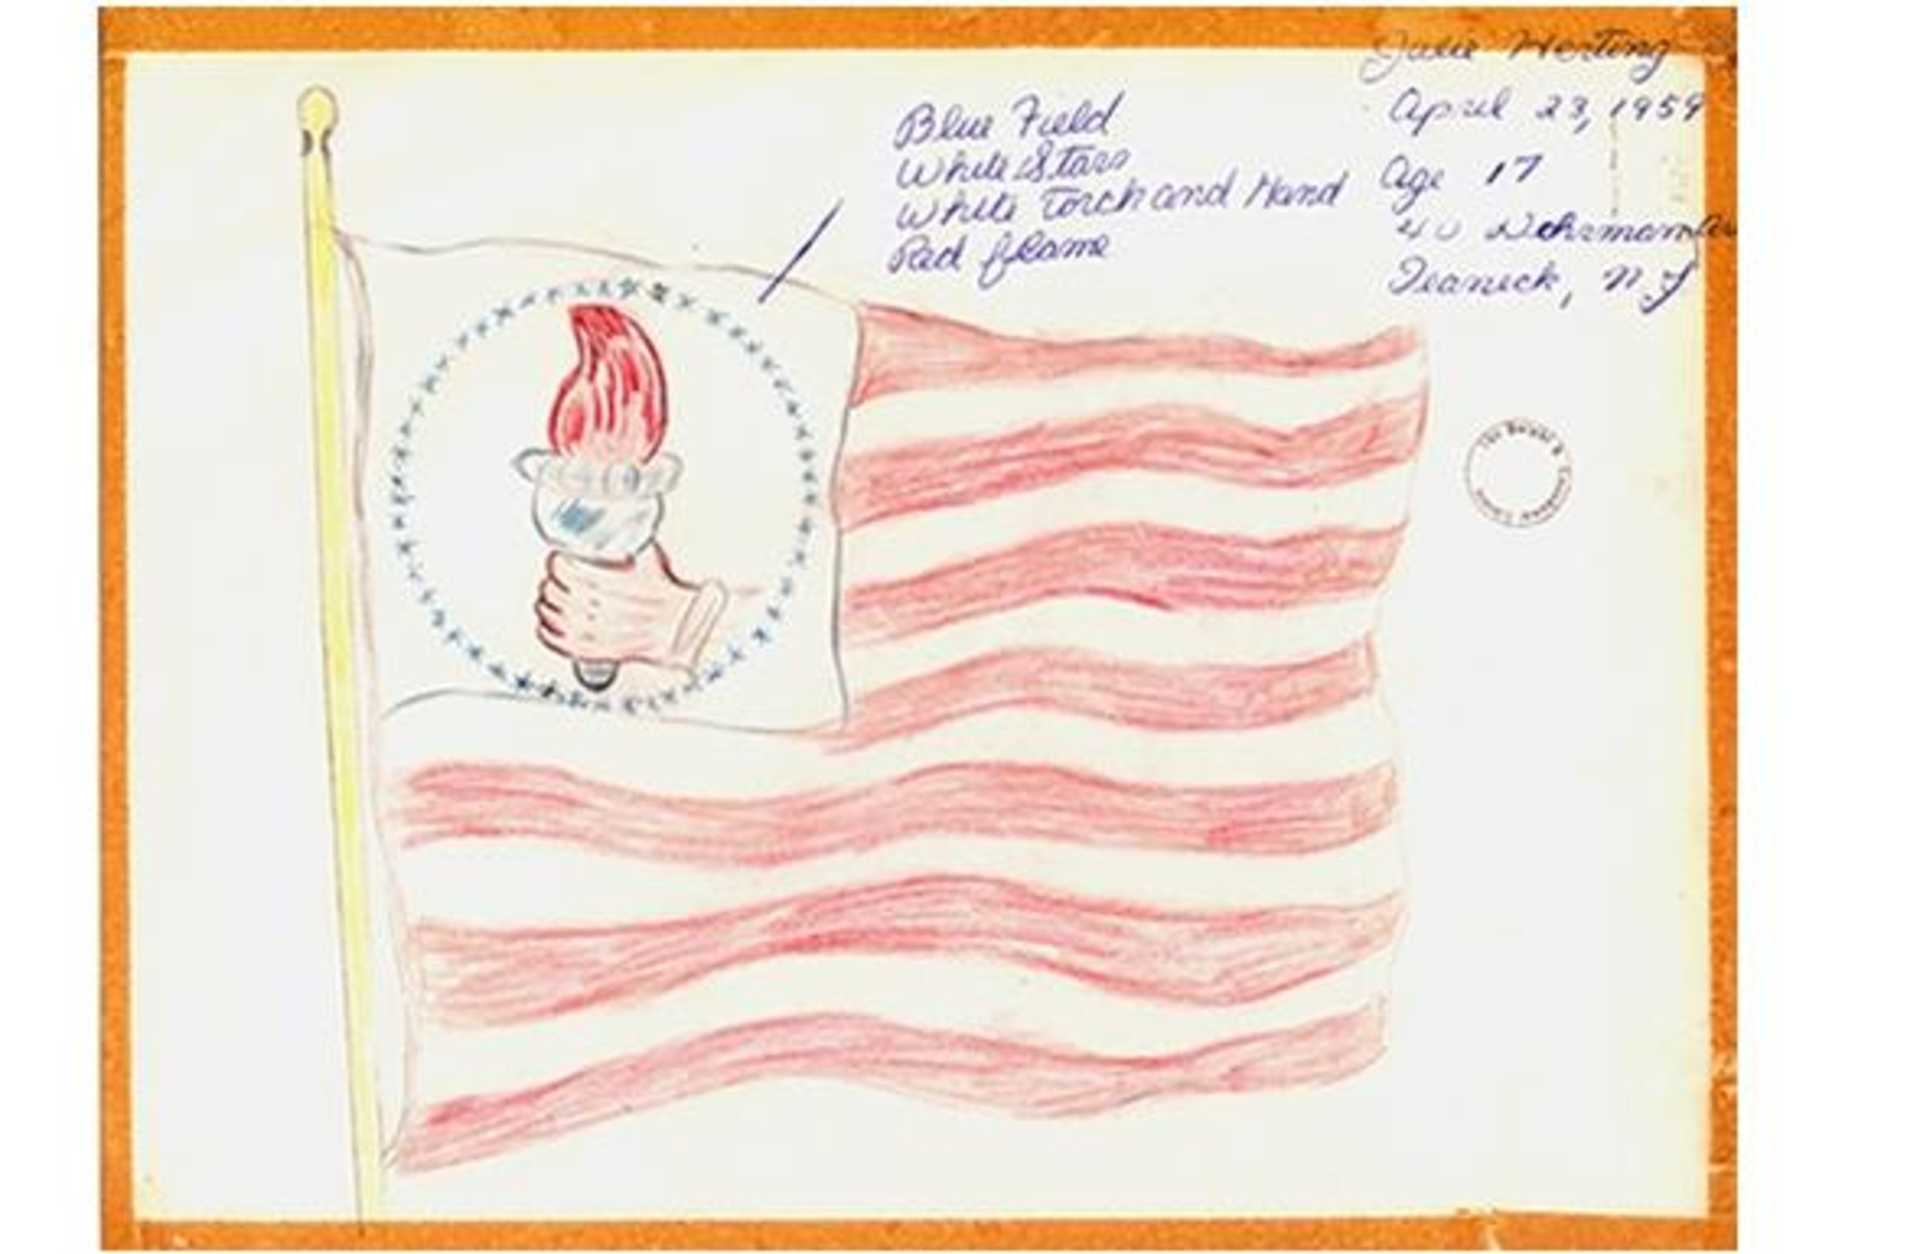 Julie Herting
April 23, 1959
Age 17
40
Teaneck, N.J
Blue Field
White Stars
White Torch and Hand
Red flame